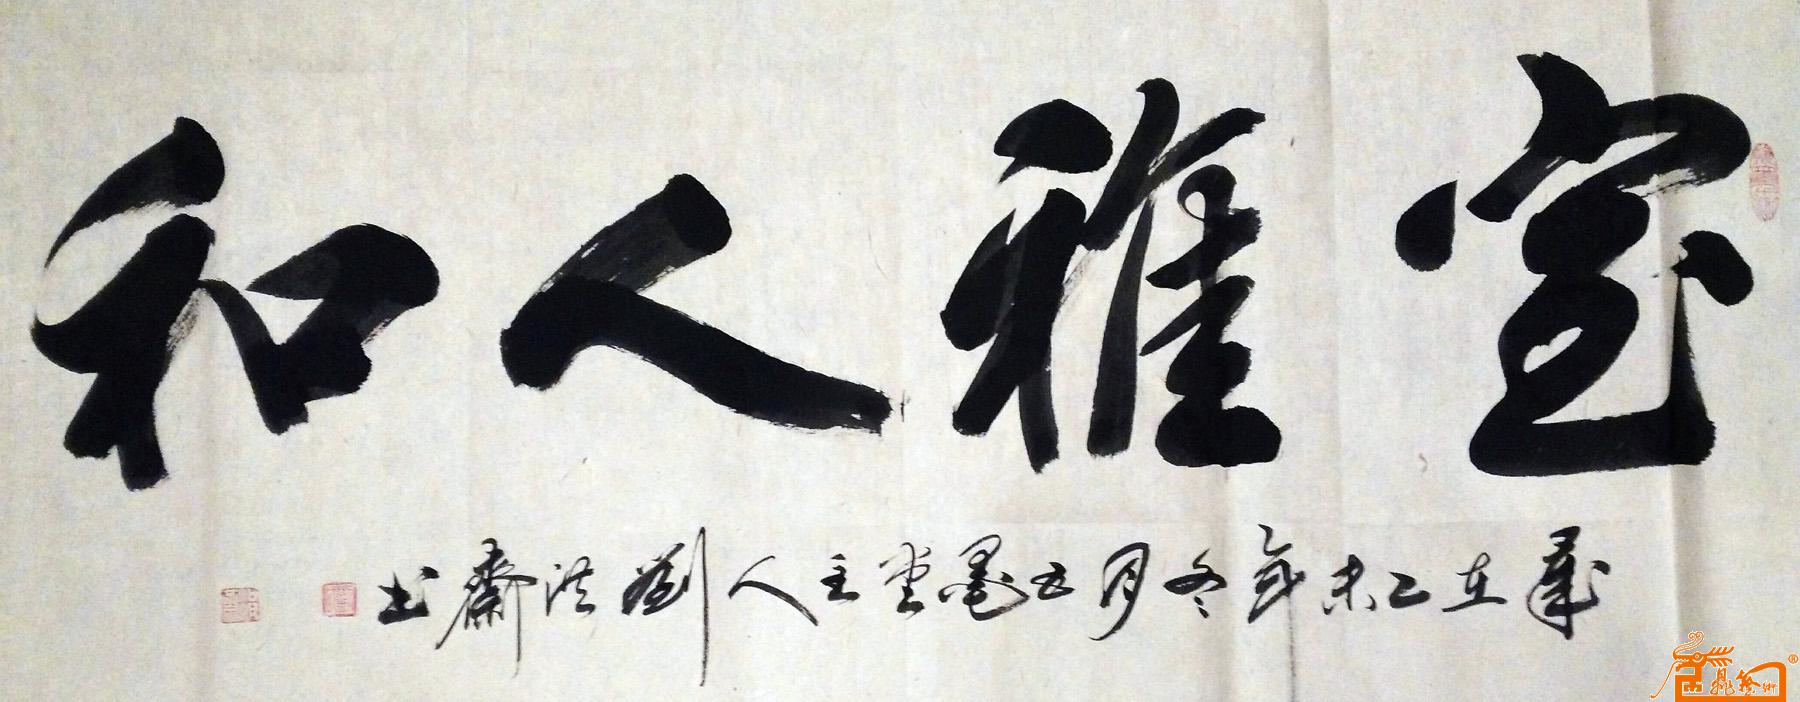 室雅人和
岁在乙未年冬月五墨堂主人刘洪齋书